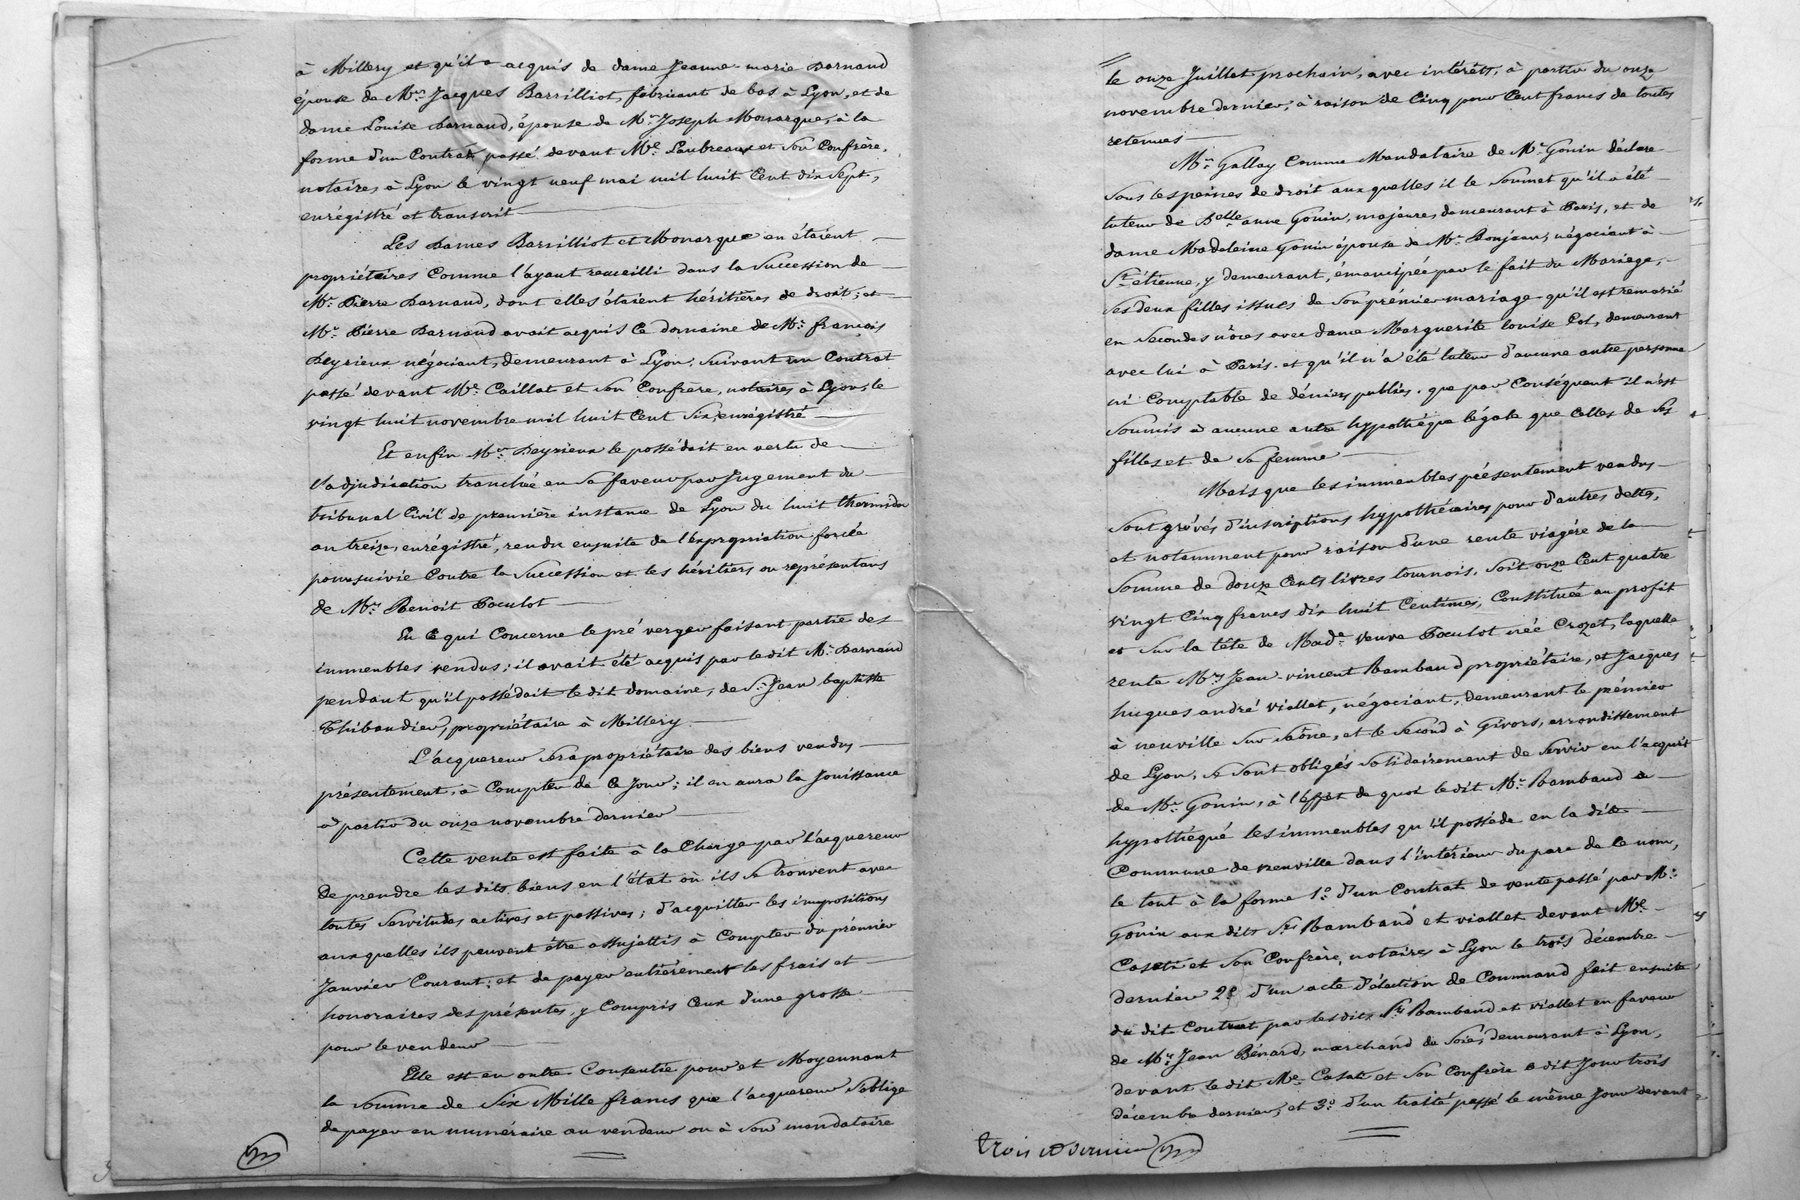 à Millery et qu'il a acquis de dame Jeanne-marie Barnaud
épouse de Mr. Jacques Barrilliot, fabricant de bas à Lyon, et de
dame Louise Barnaud, épouse de Mr. Joseph Monarque, à la
forme d'un Contrat passé devant Me. Laubreaux et Son Confrère,
notaires à Lyon le vingt neuf mai mil huit Cent dix Sept,
enrégistré et transcrit
Les Dames Barrilliot et Monarque en étaient
propriétaires Comme l'ayant recueilli dans la Succession de
Mr. Pierre Barnaud, dont elles étaient héritières de droit; et
Mr. Pierre Barnaud avait acquis Ce domaine de Mr. françois
Peyrieux négociant, demeurant à Lyon, Suivant un Contrat
passé devant Me. Caillat et Son Confrere, notaires à Lyon, le
vingt huit novembre mil huit Cent Six, enrégistré
Et enfin Mr. Peyrieux le possédait en vertu de
l'adjudication tranchée en Sa faveur par Jugement du
tribunal Civil de première instance de Lyon du huit thermidor
an treize, enrégistré, rendu ensuite de l'expropriation forcée
poursuivie Contre la Succession et les héritiers ou représentans
de Mr. Benoit Poculot
En Ce qui Concerne le pré verger faisant partie des
immeubles vendus; il avait été acquis par le dit Mr. Barnaud
pendant qu'il possédait le dit domaine, de Sr. Jean baptiste
Thibaudier, propriétaire à Millery.
L'acquereur Sera propriétaire des biens vendus
présentement, à Compter de Ce Jour; il en aura la Jouissance
à partir du onze novembre dernier
Cette vente est faite à la Charge par l'acquereur
De prendre les dits biens en l'état où ils Se trouvent avec
toutes Servitudes actives et passives; d'acquitter les impositions
auxquelles ils peuvent être assujettis à Compter du prémier
Janvier Courant; et de payer entièrement les frais et
honoraires des présentes, y Compris Ceux d'une grosse
pour le vendeur
Elle est en outre Consentie pour et Moyennant
la Somme de Six Mille francs que l'acquereur S'oblige
de payer en numéraire au vendeur ou à Son mandataire
le onze Juillet prochain, avec intérêts, à partir du onze
novembre dernier, à raison de Cinq pour Cent francs de toutes
retenues
Mr. Gallay Comme Mandataire de Mr. Gonin déclare
Sous les peines de droit auxquelles il le Soumet qu'il a été
tuteur de Delle. anne Gonin, majeure, demeurant à Paris, et de
dame Madeleine Gonin épouse de Mr. Bonjean, négociant à
St. étienne, y demeurant, émancipée par le fait du Mariage,
Ses deux filles issues de Son prémier mariage qu'il est remarié
en Secondes nôces avec dame Marguerite louise Col, demeurant
avec lui à Paris. et qu'il n'a été tuteur d'aucune autre personne
ni Comptable de déniers publics. que par Conséquent il n'est
Soumis à aucune autre hypothéque légale que Celles de Ses
filles et de Sa femme
Mais que les immeubles présentement vendus
Sont grévés d'inscriptions hypothécaires pour d'autres dettes,
et notamment pour raison d'une rente viagére de la
Somme de douze Cents livres tournois, Soit onze Cent quatre
vingt Cinq francs dix huit Centimes, Constituée au profit
et Sur la tête de Made. veuve Poculot née Crozet, laquelle
rente Mrs Jean-vincent Rambaud propriétaire, et Jacques
hugues andré viallet, négociant, demeurant le prémier
à neuville Sur Saône, et le Second à Givors, arrondissement
de Lyon, Se Sont obligés Solidairement de Servir en l'acquit
de Mr. Gonin, à l'effet de quoi le dit Mr. Rambaud a
hypothéqué les immeubles qu'il posséde en la dite
Commune de neuville dans l'intérieur du parc de Ce nom,
le tout à la forme 1º. d'un Contrat de vente passé par Mr.
Gonin aux dits Srs Rambaud et viallet devant Me.
Casati et Son Confrère, notaires à Lyon le trois décembre
dernier 2º. d'un acte d'élection de Command fait ensuite
du dit Contrat par les dits Srs Rambaud et viallet en faveur
de Mr. Jean Bénard, marchand de Soie, demeurant à Lyon,
devant le dit Me. Casati et Son Confrère le dit Jour trois
décembre dernier, et 3º. d'un traité passé le même Jour devant
trois et dernier